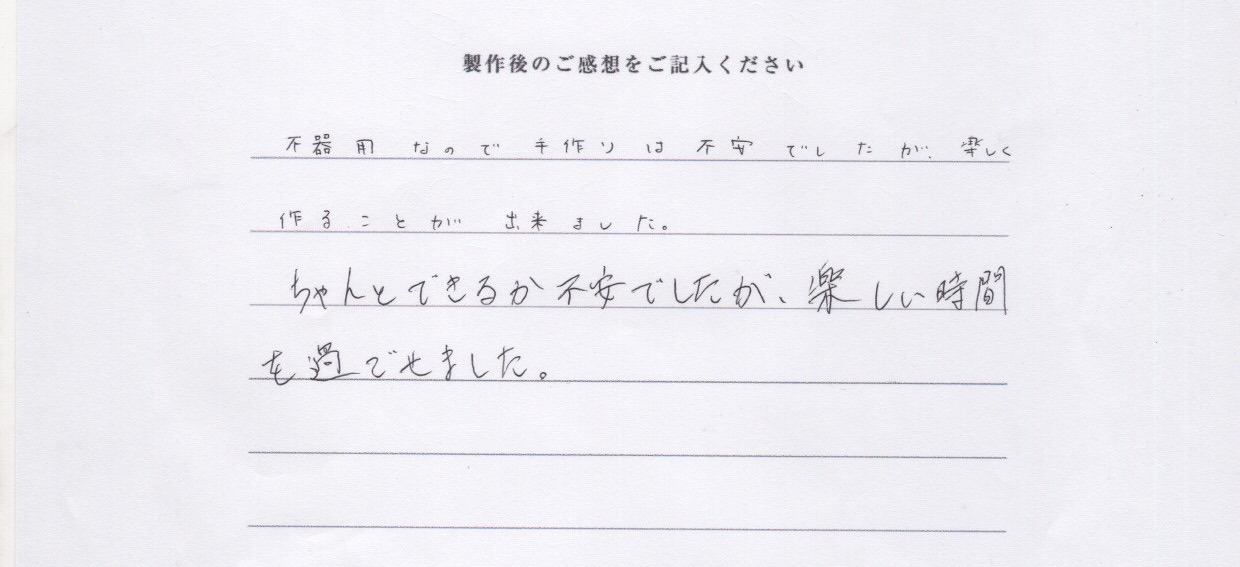 製作後のご感想をご記入ください
不器用なので手作りは不安でしたが、楽しく
作ることが出来ました。
ちゃんとできるか不安でしたが、楽しい時間
を過でせました。